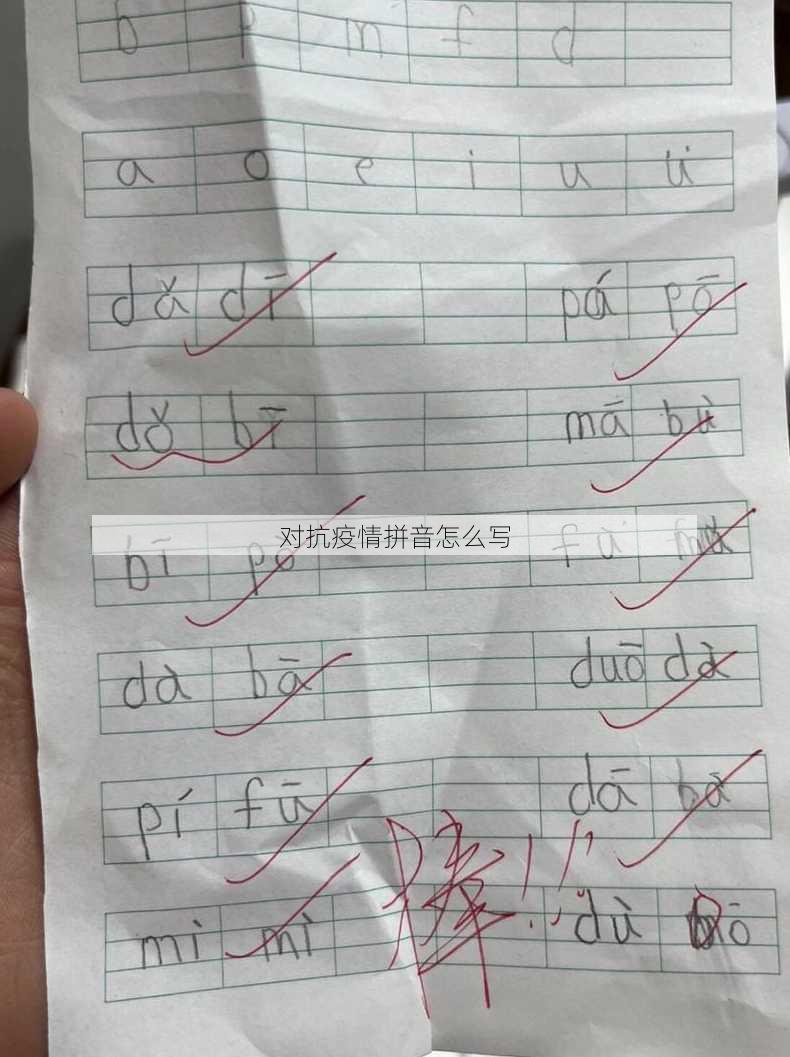 b p m f d
a o e i u ü
dǎ dī pá pō
dǒ bī mā bù
对抗疫情拼音怎么写
bī pò fù
dà bā duō dà
pí fū dā bà
mì mì dù
棒!!!